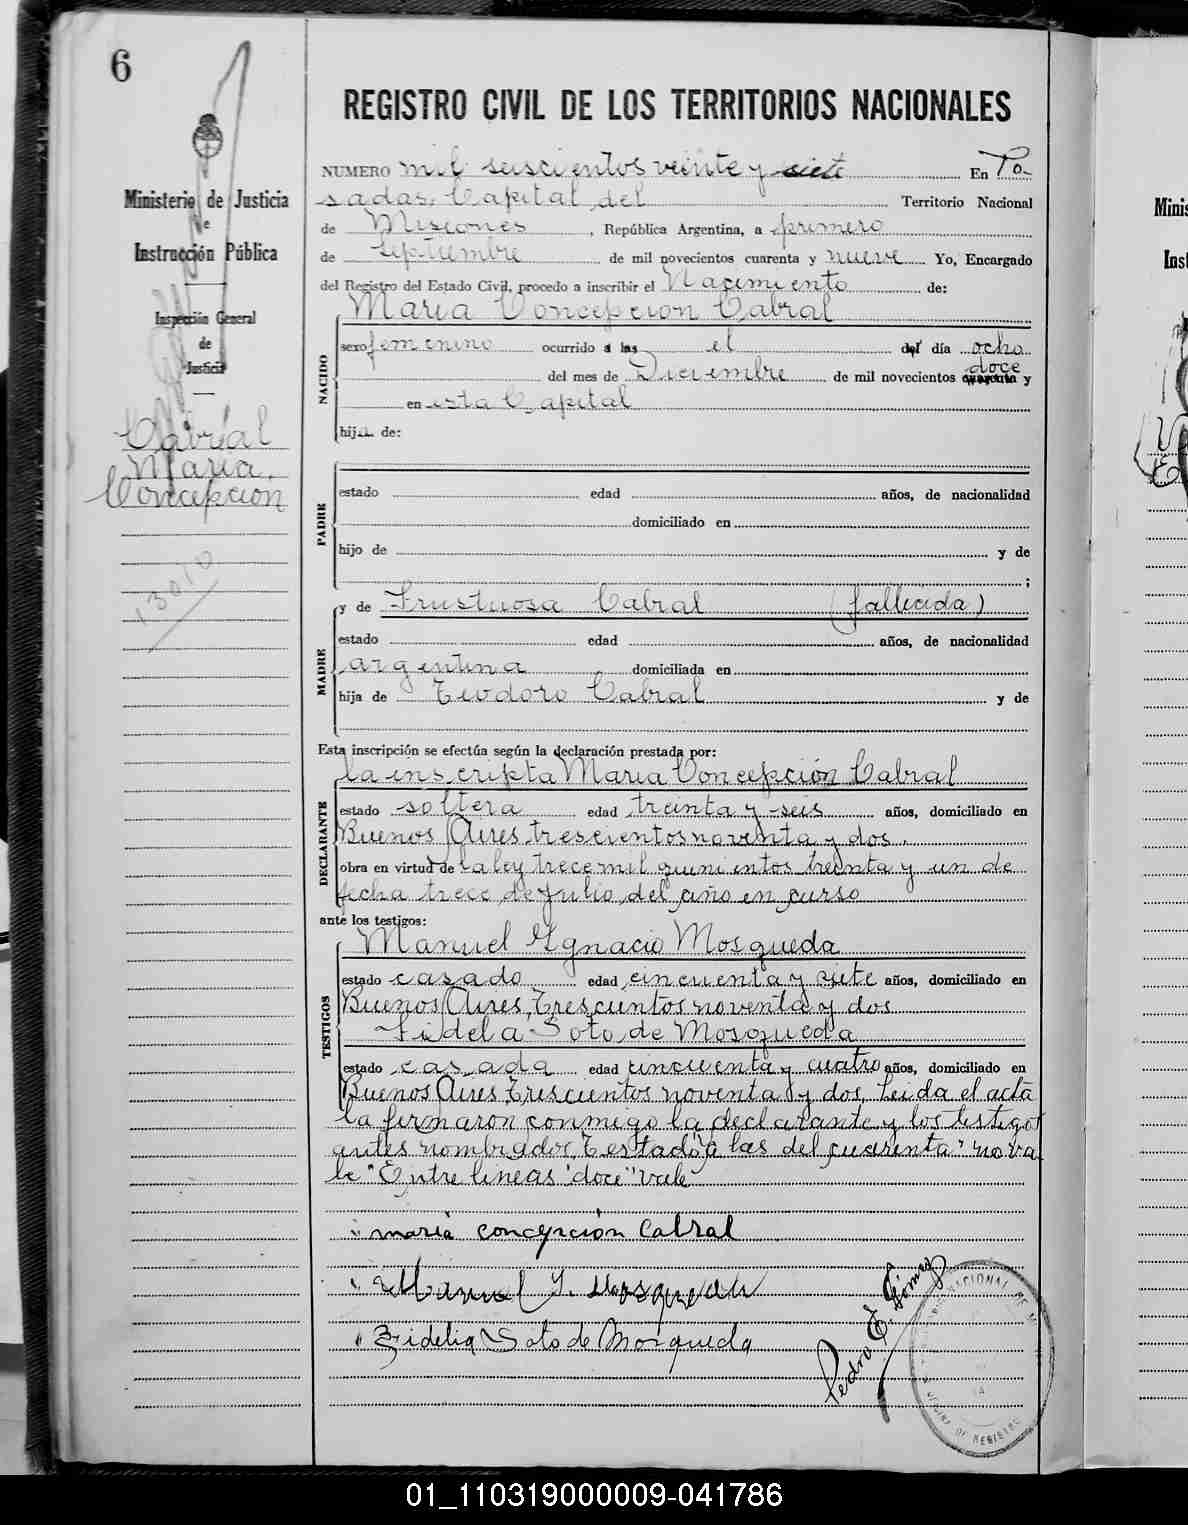 6
Ministerio de Justicia
e
Instrucción Pública
Inspección General
de
Justicia
Cabral
Maria
Concepcion
13010
REGISTRO CIVIL DE LOS TERRITORIOS NACIONALES
NUMERO mil seiscientos veinte y siete En Po-
sadas, Capital del Territorio Nacional
de Misiones, República Argentina, a primero
de Septiembre de mil novecientos cuarenta y nueve Yo, Encargado
del Registro del Estado Civil, procedo a inscribir el Nacimiento de:
Maria Concepcion Cabral
NACIDO
sexo femenino ocurrido a las el del día ocho
doce
del mes de Diciembre de mil novecientos cuarenta y
en esta Capital
hija de:
PADRE
estado edad años, de nacionalidad
domiciliado en
hijo de y de
;
MADRE
y de Frustuosa Cabral (fallecida)
estado edad años, de nacionalidad
argentina domiciliada en
hija de Teodoro Cabral y de
Esta inscripción se efectúa según la declaración prestada por:
la inscripta Maria Concepción Cabral
DECLARANTE
estado soltera edad treinta y seis años, domiciliado en
Buenos Aires trescientos noventa y dos.
obra en virtud de la ley trece mil quinientos treinta y un de
fecha trece de Julio del año en curso
ante los testigos:
TESTIGOS
Manuel Ygnacio Mosqueda
estado casado edad cincuenta y siete años, domiciliado en
Buenos Aires, Trescientos noventa y dos
Fidela Soto de Mosqueda
estado casada edad cincuenta y cuatro años, domiciliado en
Buenos Aires Trescientos noventa y dos, Leida el acta
la firmaron conmigo la declarante y los testigos
antes nombrados, Testado "a las del cuarenta" no va-
le "Entre lineas "doce" vale
maria concepción Cabral
Manuel Y. Mosqueda
Fidelia Soto de Mosqueda
Pedro E. Gómez
NACIONAL DE
OFICINA DE REGISTRO
Minis
Inst
01_110319000009-041786